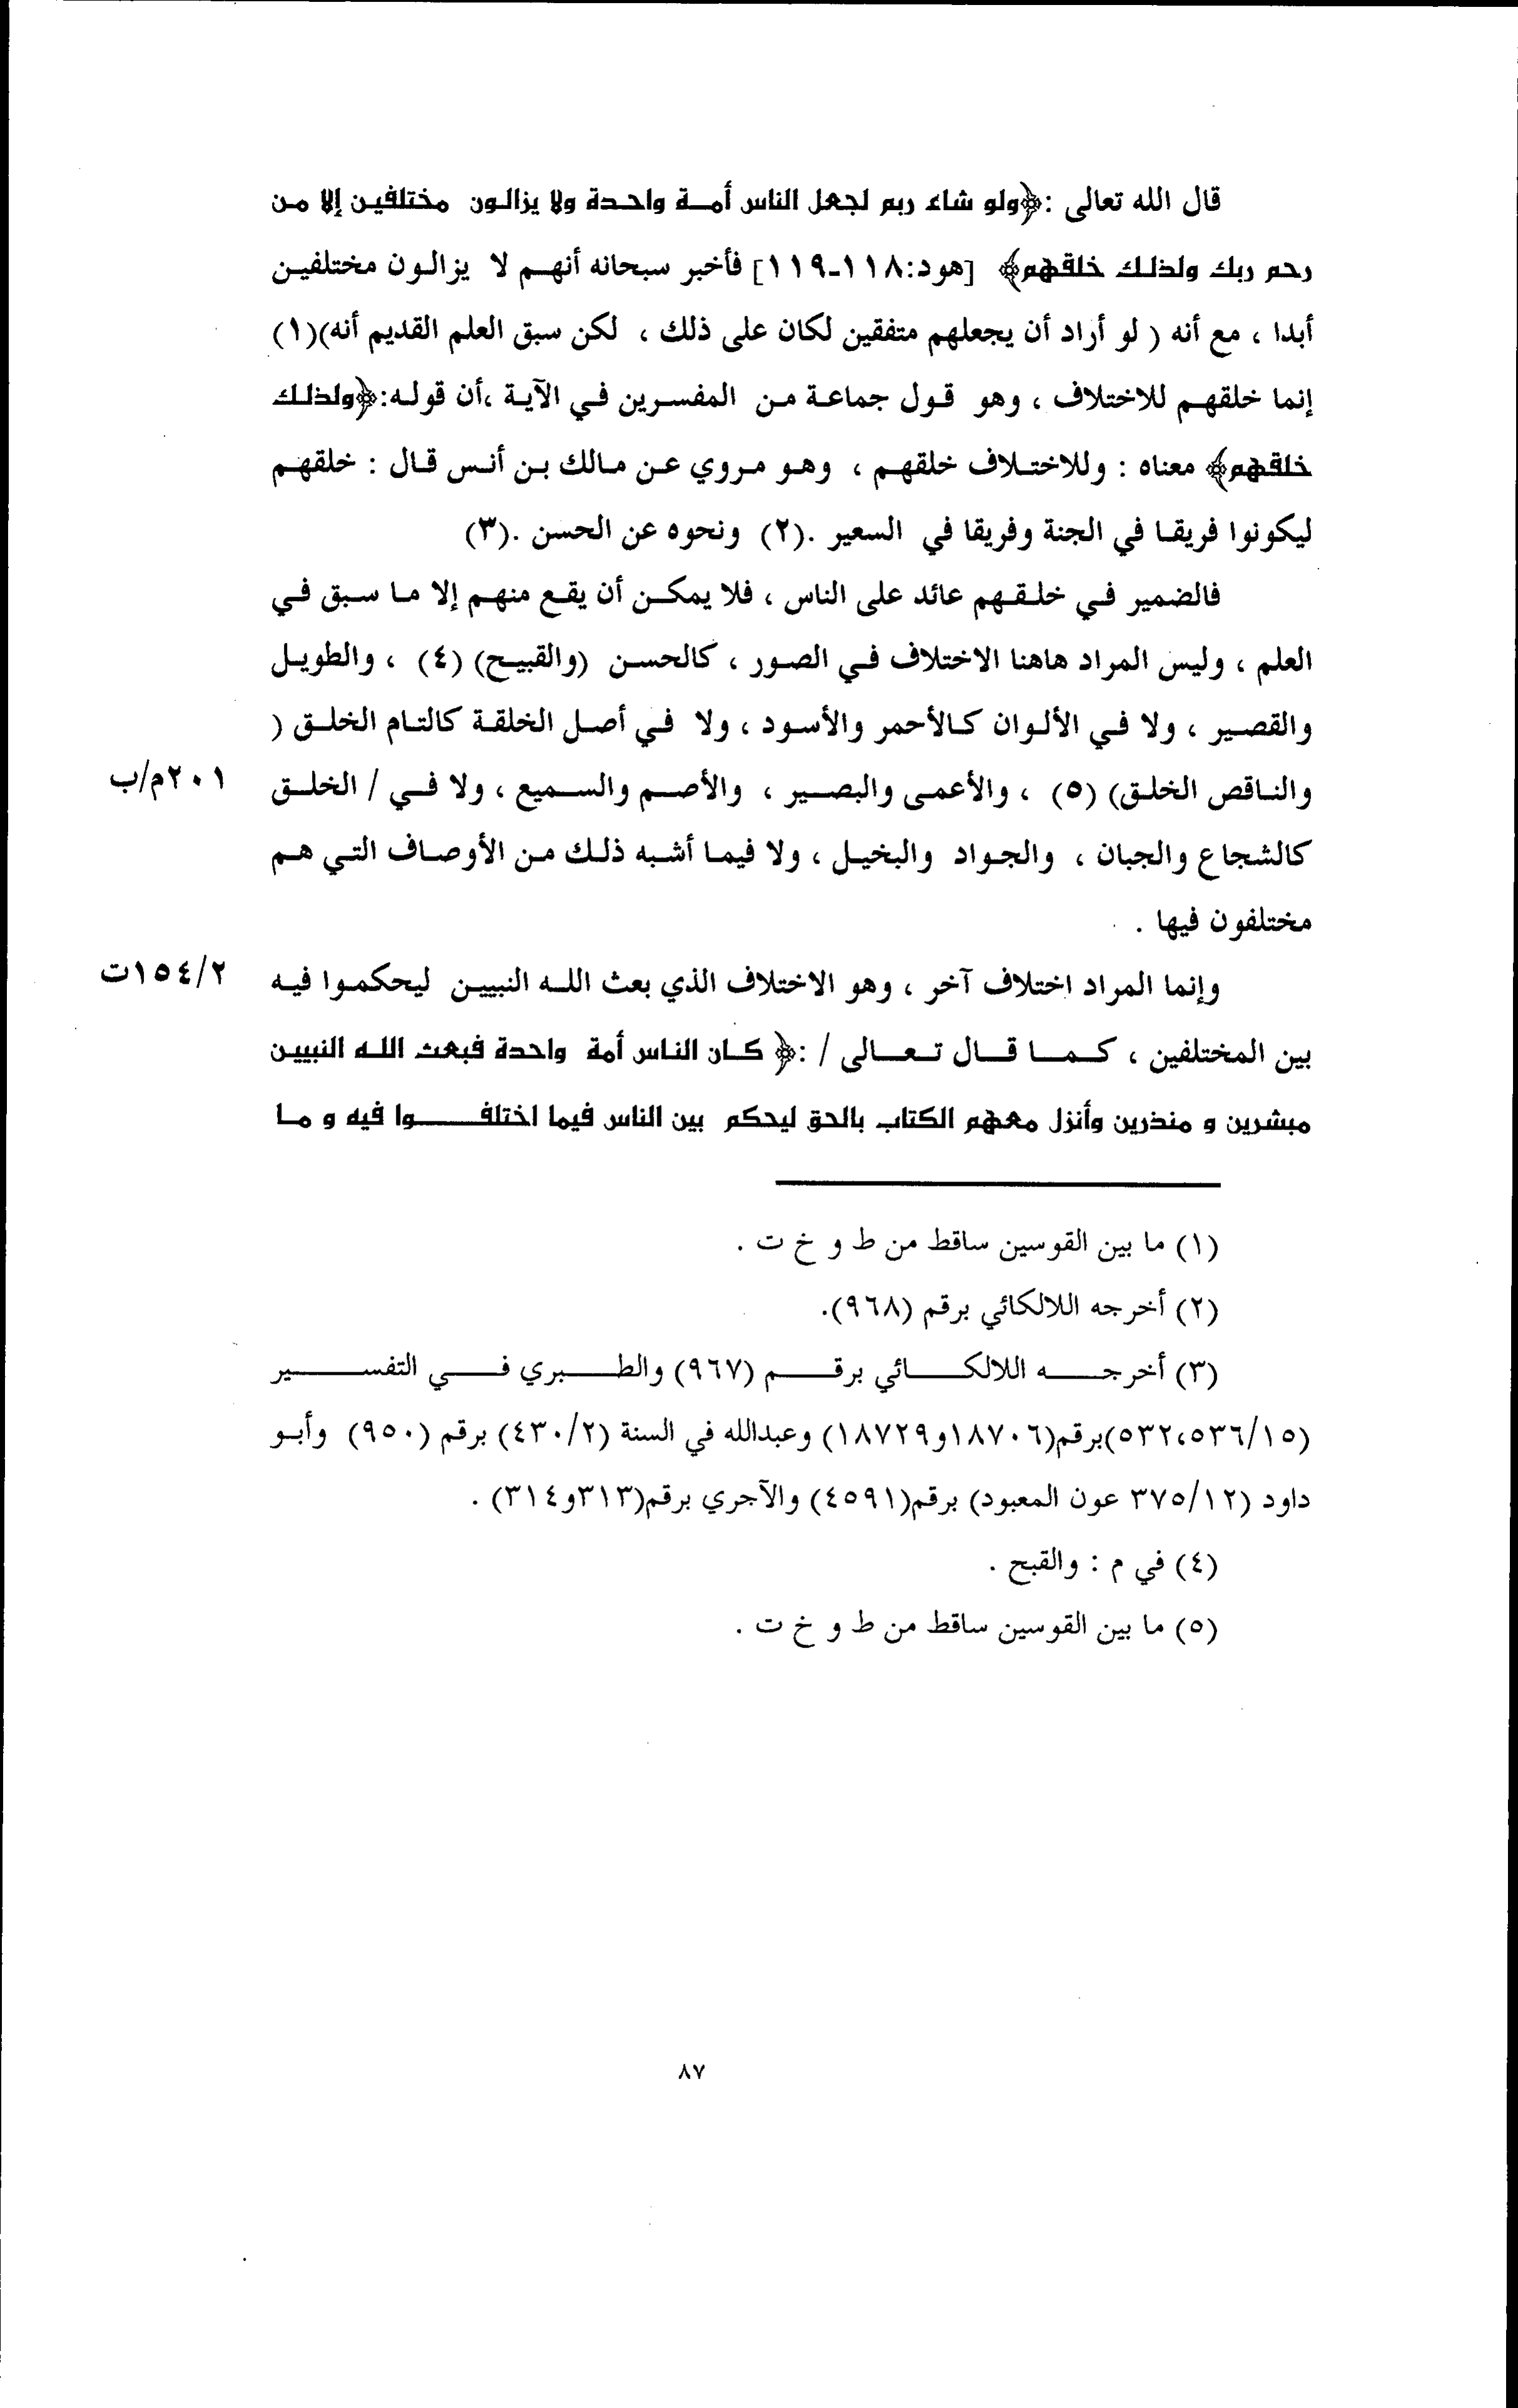 قال الله تعالى :﴿ولو شاء ربم لجعل الناس أمة واحدة ولا يزالون مختلفين إلا من
رحم ربك ولذلك خلقهم﴾ [هود:١١٨-١١٩] فأخبر سبحانه أنهم لا يزالون مختلفين
أبدا ، مع أنه ( لو أراد أن يجعلهم متفقين لكان على ذلك ، لكن سبق العلم القديم أنه)(١)
إنما خلقهم للاختلاف ، وهو قول جماعة من المفسرين في الآية ،أن قوله:﴿ولذلك
خلقهم﴾ معناه : وللاختلاف خلقهم ، وهو مروي عن مالك بن أنس قال : خلقهم
ليكونوا فريقا في الجنة وفريقا في السعير .(٢) ونحوه عن الحسن .(٣)
فالضمير في خلقهم عائد على الناس ، فلا يمكن أن يقع منهم إلا ما سبق في
العلم ، وليس المراد هاهنا الاختلاف في الصور ، كالحسن (والقبيح) (٤) ، والطويل
والقصير ، ولا في الألوان كالأحمر والأسود ، ولا في أصل الخلقة كالتام الخلق (
والناقص الخلق) (٥) ، والأعمى والبصير ، والأصم والسميع ، ولا في / الخلق ٢٠١م/ب
كالشجاع والجبان ، والجواد والبخيل ، ولا فيما أشبه ذلك من الأوصاف التي هم
مختلفون فيها .
وإنما المراد اختلاف آخر ، وهو الاختلاف الذي بعث الله النبيين ليحكموا فيه ١٥٤/٢ت
بين المختلفين ، كما قال تعالى / :﴿ كان الناس أمة واحدة فبعث الله النبيين
مبشرين و منذرين وأنزل معهم الكتاب بالحق ليحكم بين الناس فيما اختلفوا فيه و ما
(١) ما بين القوسين ساقط من ط و خ ت .
(٢) أخرجه اللالكائي برقم (٩٦٨).
(٣) أخرجه اللالكائي برقم (٩٦٧) والطبري في التفسير
(٥٣٢،٥٣٦/١٥)برقم(١٨٧٠٦و١٨٧٢٩) وعبدالله في السنة (٤٣٠/٢) برقم (٩٥٠) وأبو
داود (٣٧٥/١٢ عون المعبود) برقم(٤٥٩١) والآجري برقم(٣١٣و٣١٤) .
(٤) في م : والقبح .
(٥) ما بين القوسين ساقط من ط و خ ت .
٨٧